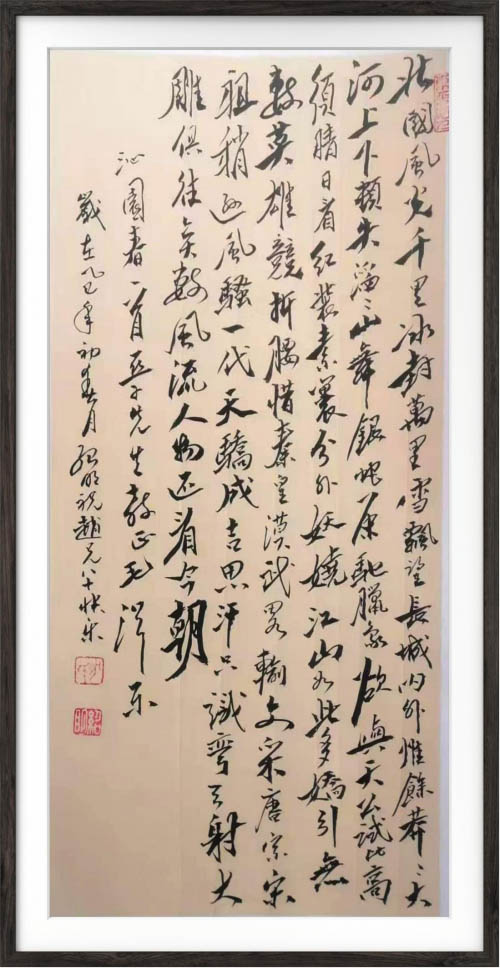 北國風光千里冰封萬里雪飄望長城内外惟餘莽〻大
河上下頓失滔〻山舞銀蛇原馳臘象欲與天公試比高
須晴日看紅裝素裹分外妖嬈江山如此多嬌引無
數英雄競折腰惜秦皇漢武略輸文采唐宗宋
祖稍遜風騷一代天驕成吉思汗只識彎弓射大
雕俱往矣數風流人物还看今朝
沁園春一首亞子先生教正毛澤东
歲在乙巳年初春月紹明祝趙兄八十快乐
紹明